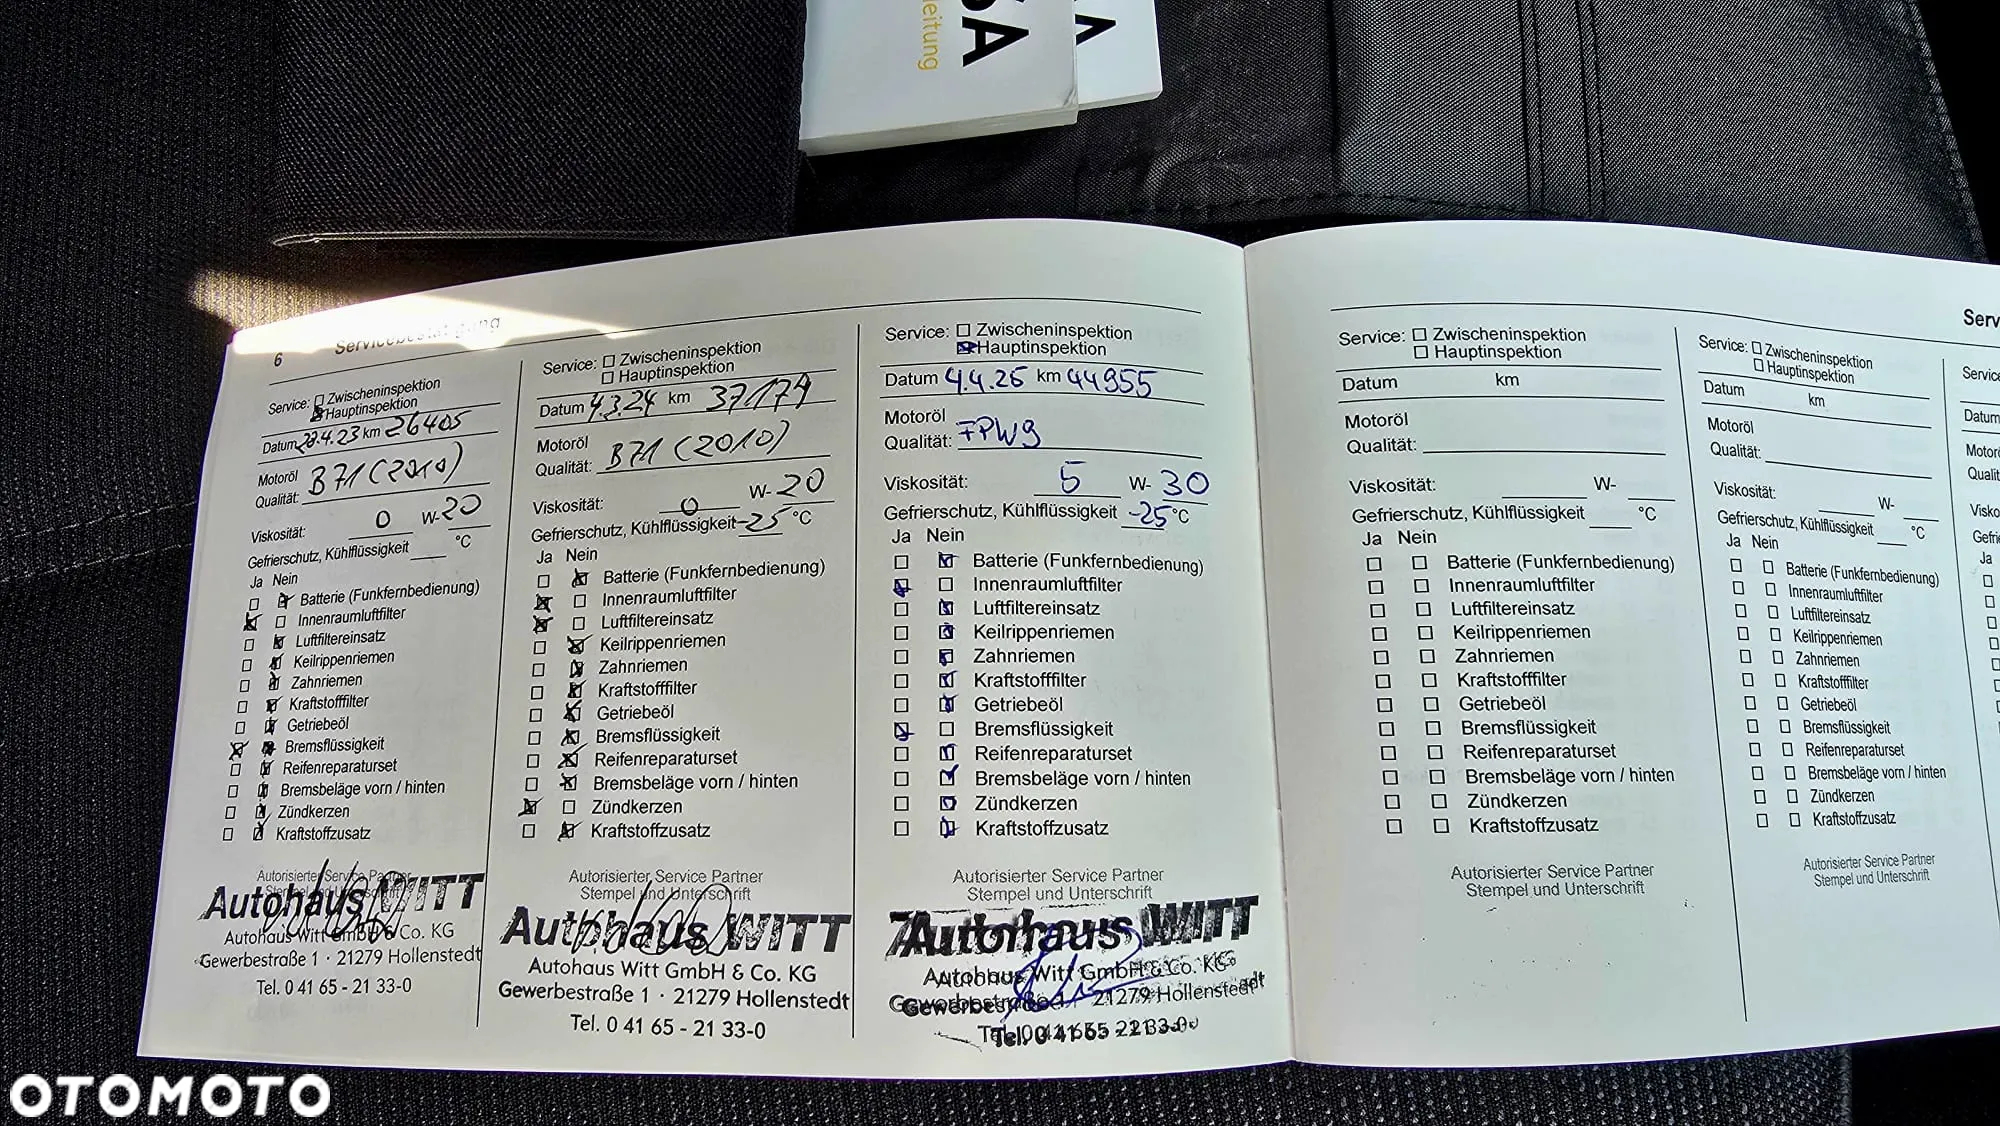 SA
eitung
A
6 Servicebestätigung
Service: Zwischeninspektion
Hauptinspektion
Datum 28.4.23 km 26405
Motoröl
Qualität: B71 (2010)
Viskosität: 0 W-20
Gefrierschutz, Kühlflüssigkeit °C
Ja Nein
Batterie (Funkfernbedienung)
Innenraumluftfilter
Luftfiltereinsatz
Keilrippenriemen
Zahnriemen
Kraftstofffilter
Getriebeöl
Bremsflüssigkeit
Reifenreparaturset
Bremsbeläge vorn / hinten
Zündkerzen
Kraftstoffzusatz
Autorisierter Service Partner
Stempel und Unterschrift
Autohaus WITT
Autohaus Witt GmbH & Co. KG
Gewerbestraße 1 · 21279 Hollenstedt
Tel. 0 41 65 - 21 33-0
Service: Zwischeninspektion
Hauptinspektion
Datum 4.3.24 km 37174
Motoröl
Qualität: B71 (2010)
Viskosität: 0 W-20
Gefrierschutz, Kühlflüssigkeit -25 °C
Ja Nein
Batterie (Funkfernbedienung)
Innenraumluftfilter
Luftfiltereinsatz
Keilrippenriemen
Zahnriemen
Kraftstofffilter
Getriebeöl
Bremsflüssigkeit
Reifenreparaturset
Bremsbeläge vorn / hinten
Zündkerzen
Kraftstoffzusatz
Autorisierter Service Partner
Stempel und Unterschrift
Autohaus WITT
Autohaus Witt GmbH & Co. KG
Gewerbestraße 1 · 21279 Hollenstedt
Tel. 0 41 65 - 21 33-0
Service: Zwischeninspektion
Hauptinspektion
Datum 4.4.25 km 44955
Motoröl
Qualität: FPW9
Viskosität: 5 W- 30
Gefrierschutz, Kühlflüssigkeit -25 °C
Ja Nein
Batterie (Funkfernbedienung)
Innenraumluftfilter
Luftfiltereinsatz
Keilrippenriemen
Zahnriemen
Kraftstofffilter
Getriebeöl
Bremsflüssigkeit
Reifenreparaturset
Bremsbeläge vorn / hinten
Zündkerzen
Kraftstoffzusatz
Autorisierter Service Partner
Stempel und Unterschrift
Autohaus WITT
Autohaus Witt GmbH & Co. KG
Gewerbestraße 1 · 21279 Hollenstedt
Tel. 0 41 65 - 21 33-0
Service: Zwischeninspektion
Hauptinspektion
Datum km
Motoröl
Qualität:
Viskosität: W-
Gefrierschutz, Kühlflüssigkeit °C
Ja Nein
Batterie (Funkfernbedienung)
Innenraumluftfilter
Luftfiltereinsatz
Keilrippenriemen
Zahnriemen
Kraftstofffilter
Getriebeöl
Bremsflüssigkeit
Reifenreparaturset
Bremsbeläge vorn / hinten
Zündkerzen
Kraftstoffzusatz
Autorisierter Service Partner
Stempel und Unterschrift
Service: Zwischeninspektion
Hauptinspektion
Datum km
Motoröl
Qualität:
Viskosität: W-
Gefrierschutz, Kühlflüssigkeit °C
Ja Nein
Batterie (Funkfernbedienung)
Innenraumluftfilter
Luftfiltereinsatz
Keilrippenriemen
Zahnriemen
Kraftstofffilter
Getriebeöl
Bremsflüssigkeit
Reifenreparaturset
Bremsbeläge vorn / hinten
Zündkerzen
Kraftstoffzusatz
Autorisierter Service Partner
Stempel und Unterschrift
Serv
Service
Datum
Motorö
Qualit
Visko
Gefri
Ja
OTOMOTO